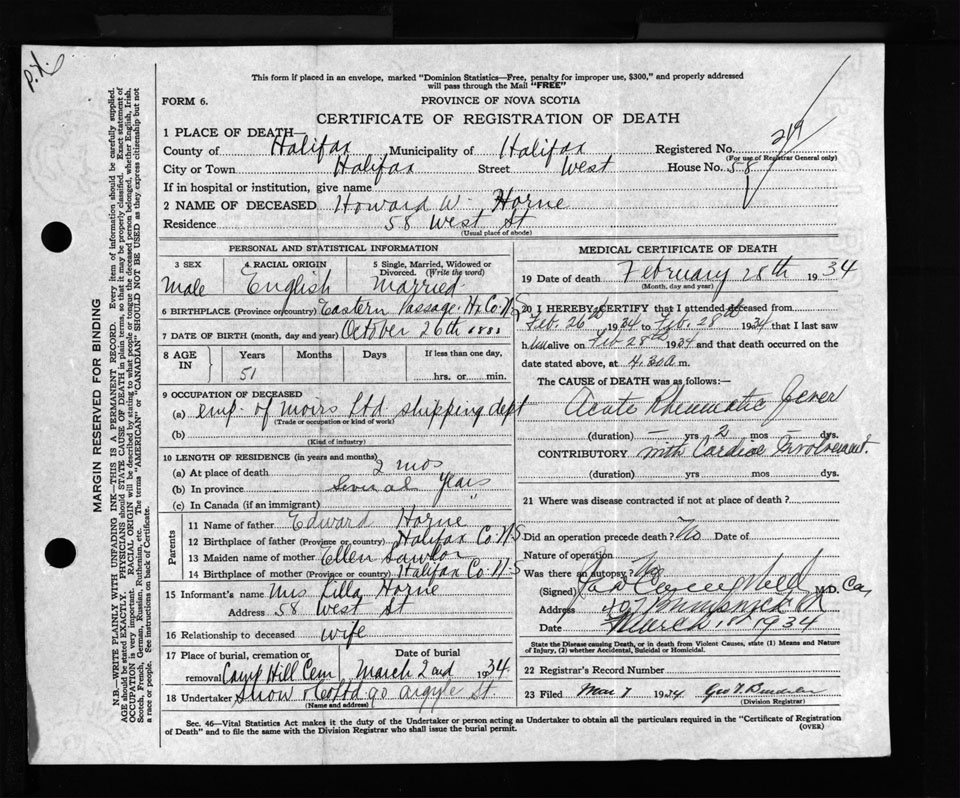 p.x.
This form if placed in an envelope, marked "Dominion Statistics—Free, penalty for improper use, $300," and properly addressed
will pass through the Mail "FREE"
FORM 6.
PROVINCE OF NOVA SCOTIA
CERTIFICATE OF REGISTRATION OF DEATH
1 PLACE OF DEATH—
County of Halifax Municipality of Halifax Registered No. 219
(For use of Registrar General only)
City or Town Halifax Street West House No. 58
If in hospital or institution, give name
2 NAME OF DECEASED Howard W. Horne
Residence 58 West St
(Usual place of abode)
PERSONAL AND STATISTICAL INFORMATION
3 SEX 4 RACIAL ORIGIN 5 Single, Married, Widowed or
Divorced. (Write the word)
Male English Married
6 BIRTHPLACE (Province or country) Eastern Passage. Hx Co. N.S
7 DATE OF BIRTH (month, day and year) October 26th 1883
8 AGE IN Years Months Days If less than one day,
51 hrs. or min.
9 OCCUPATION OF DECEASED
(a) emp. of Moirs Ltd shipping dept
(Trade or occupation or kind of work)
(b)
(Kind of industry)
10 LENGTH OF RESIDENCE (in years and months)
(a) At place of death 2 mos
(b) In province Several Years
(c) In Canada (if an immigrant) "
Parents
11 Name of father Edward Horne
12 Birthplace of father (Province or country) Halifax Co. N.S
13 Maiden name of mother Ellen
14 Birthplace of mother (Province or country) Halifax Co. N.S
15 Informant's name Mrs Lilla Horne
Address 58 West St
16 Relationship to deceased wife
17 Place of burial, cremation or removal Camp Hill Cem
Date of burial March 2nd 1934
18 Undertaker Snow & Co Ltd 90 Argyle St.
(Name and address)
MEDICAL CERTIFICATE OF DEATH
19 Date of death February 28th 1934
(Month, day and year)
20 I HEREBY CERTIFY that I attended deceased from
Feb. 26th 1934 to Feb. 28th 1934 that I last saw
him alive on Feb 28th 1934 and that death occurred on the
date stated above, at 4.30 a m.
The CAUSE OF DEATH was as follows:
Acute Rheumatic Fever
(duration) — yrs 2 mos — dys.
CONTRIBUTORY with Cardiac Involvement.
(duration) yrs. mos dys.
21 Where was disease contracted if not at place of death?
Did an operation precede death? No Date of
Nature of operation
Was there an autopsy? No
(Signed) M.D.
Address 401 Brunswick St
Date March 1st 1934
State the Disease causing Death, or in death from Violent Causes, state (1) Means and Nature
of Injury, (2) whether Accidental, Suicidal or Homicidal.
22 Registrar's Record Number
23 Filed Mar 7 1934 Geo
(Division Registrar)
Sec. 46—Vital Statistics Act makes it the duty of the Undertaker or person acting as Undertaker to obtain all the particulars required in the "Certificate of Registration
of Death" and to file the same with the Division Registrar who shall issue the burial permit.
(OVER)
MARGIN RESERVED FOR BINDING
N.B.—WRITE PLAINLY WITH UNFADING INK—THIS IS A PERMANENT RECORD. Every item of information should be carefully supplied.
AGE should be stated EXACTLY. PHYSICIANS should STATE CAUSE OF DEATH in plain terms, so that it may be properly classified. Exact statement of
OCCUPATION is very important. RACIAL ORIGIN will be described by stating to what people or tongue the deceased person belonged, whether English, Irish,
Scotch, French, German, Russian, Ruthenian, etc. The terms "AMERICAN" or "CANADIAN" SHOULD NOT BE USED as they express citizenship but not
a race or people. See instructions on back of Certificate.